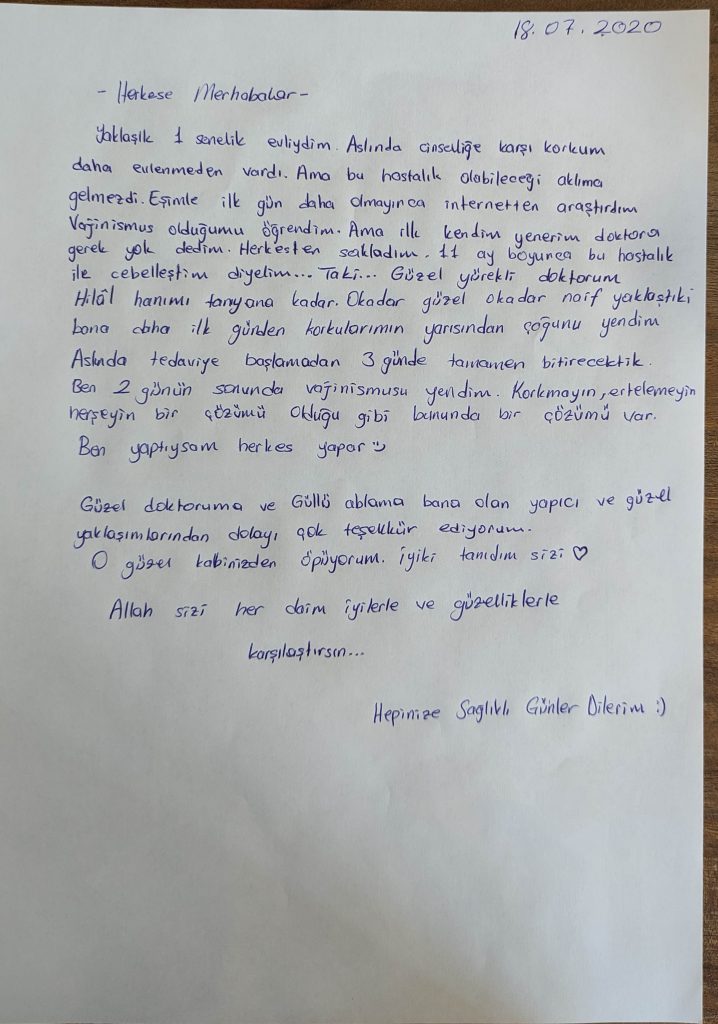 18.07.2020
- Herkese Merhabalar -
Yaklaşık 1 senelik evliydim. Aslında cinselliğe karşı korkum
daha evlenmeden vardı. Ama bu hastalık olabileceği aklıma
gelmezdi. Eşimle ilk gün daha olmayınca internetten araştırdım
Vajinismus olduğumu öğrendim. Ama ilk kendim yenerim doktora
gerek yok dedim. Herkesten sakladım. 11 ay boyunca bu hastalık
ile cebelleştim diyelim... Taki... Güzel yürekli doktorum
Hilâl hanımı tanıyana kadar. Okadar güzel okadar naif yaklaştıki
bana daha ilk günden korkularımın yarısından çoğunu yendim
Aslında tedaviye başlamadan 3 günde tamamen bitirecektik.
Ben 2 günün sonunda vajinismusu yendim. Korkmayın, ertelemeyin
herşeyin bir çözümü olduğu gibi bununda bir çözümü var.
Ben yaptıysam herkes yapar :)
Güzel doktoruma ve Güllü ablama bana olan yapıcı ve güzel
yaklaşımlarından dolayı çok teşekkür ediyorum.
O güzel kalbinizden öpüyorum. iyiki tanıdım sizi ♡
Allah sizi her daim iyilerle ve güzelliklerle
karşılaştırsın...
Hepinize Sağlıklı Günler Dilerim :)